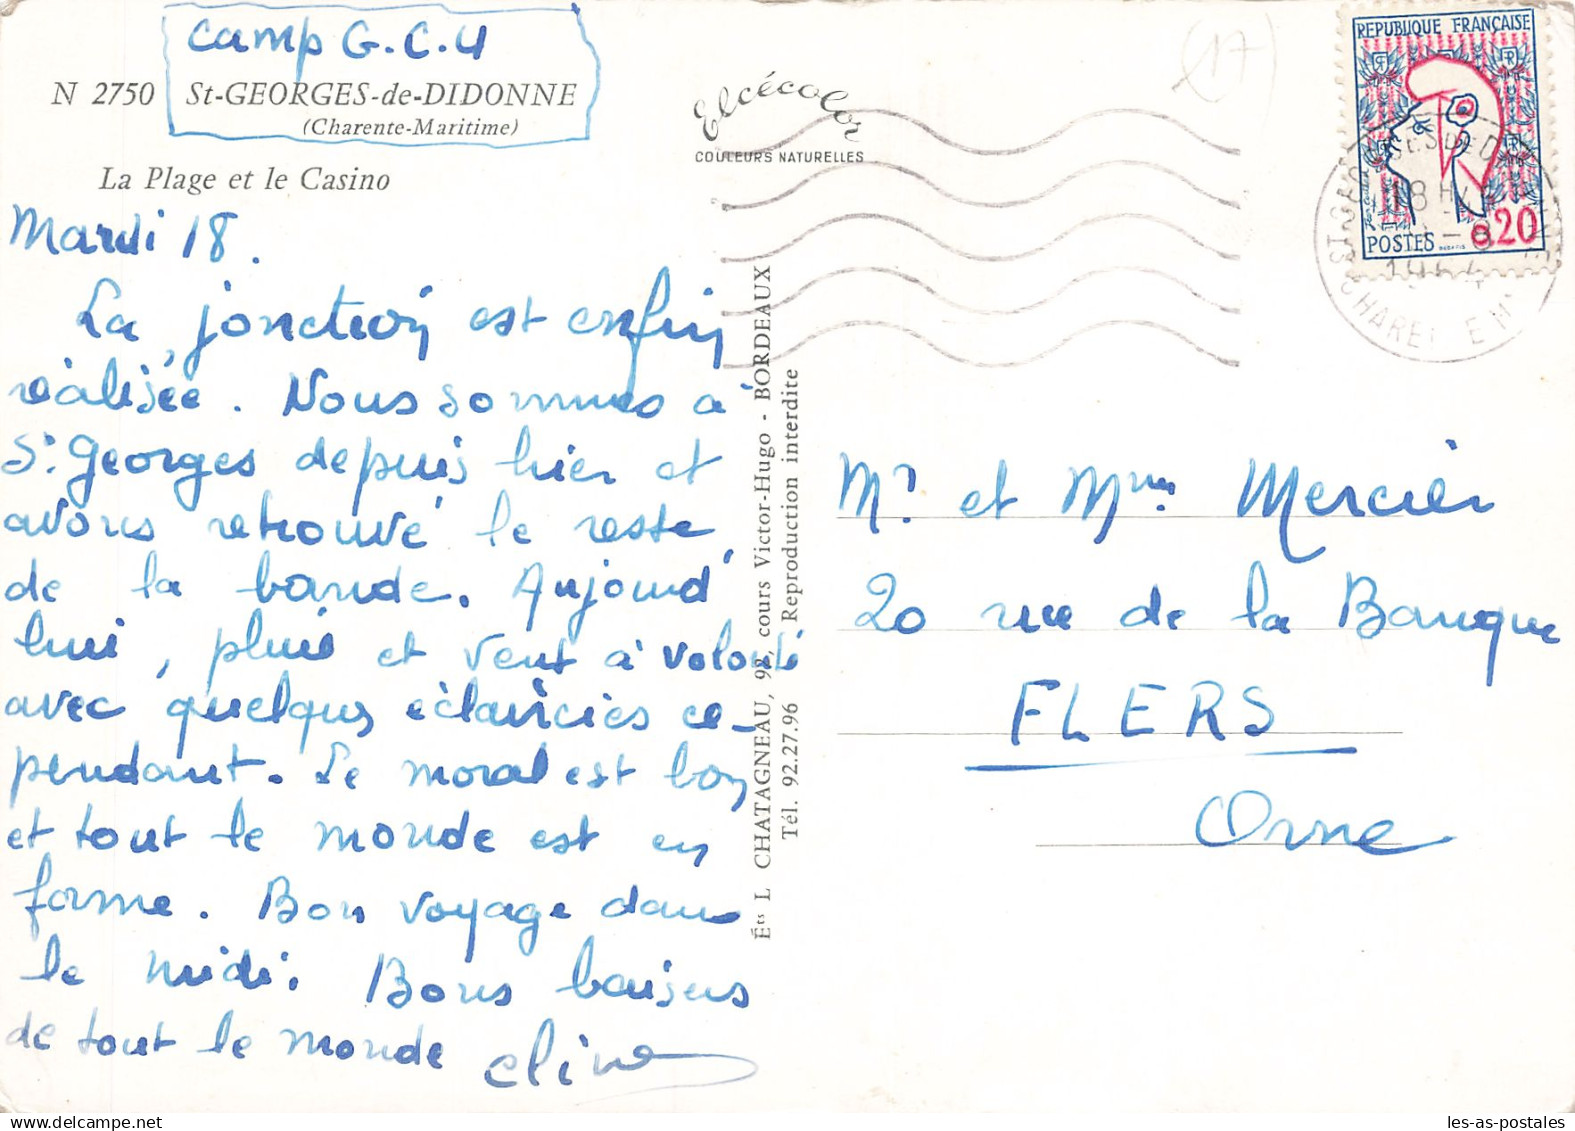 Camp G.C.U
N 2750 St-GEORGES-de-DIDONNE
(Charente-Maritime)
La Plage et le Casino
Mardi 18.
La jonction est enfin
réalisée. Nous sommes à
St Georges depuis hier et
avons retrouvé le reste
de la bande. Aujourd'
hui, pluie et vent à volonté
avec quelques éclaircies ce-
pendant. Le moral est bon
et tout le monde est en
forme. Bon voyage dans
le midi. Bons baisers
de tout le monde
Eline
Elcécolor
COULEURS NATURELLES
Éts L CHATAGNEAU, 98, cours Victor-Hugo - BORDEAUX
Tél. 92.27.96 Reproduction interdite
17
REPUBLIQUE FRANÇAISE
POSTES 0,20
18 H
Mr et Mme Mercier
20 rue de la Banque
FLERS
Orne
les-as-postales
delcampe.net